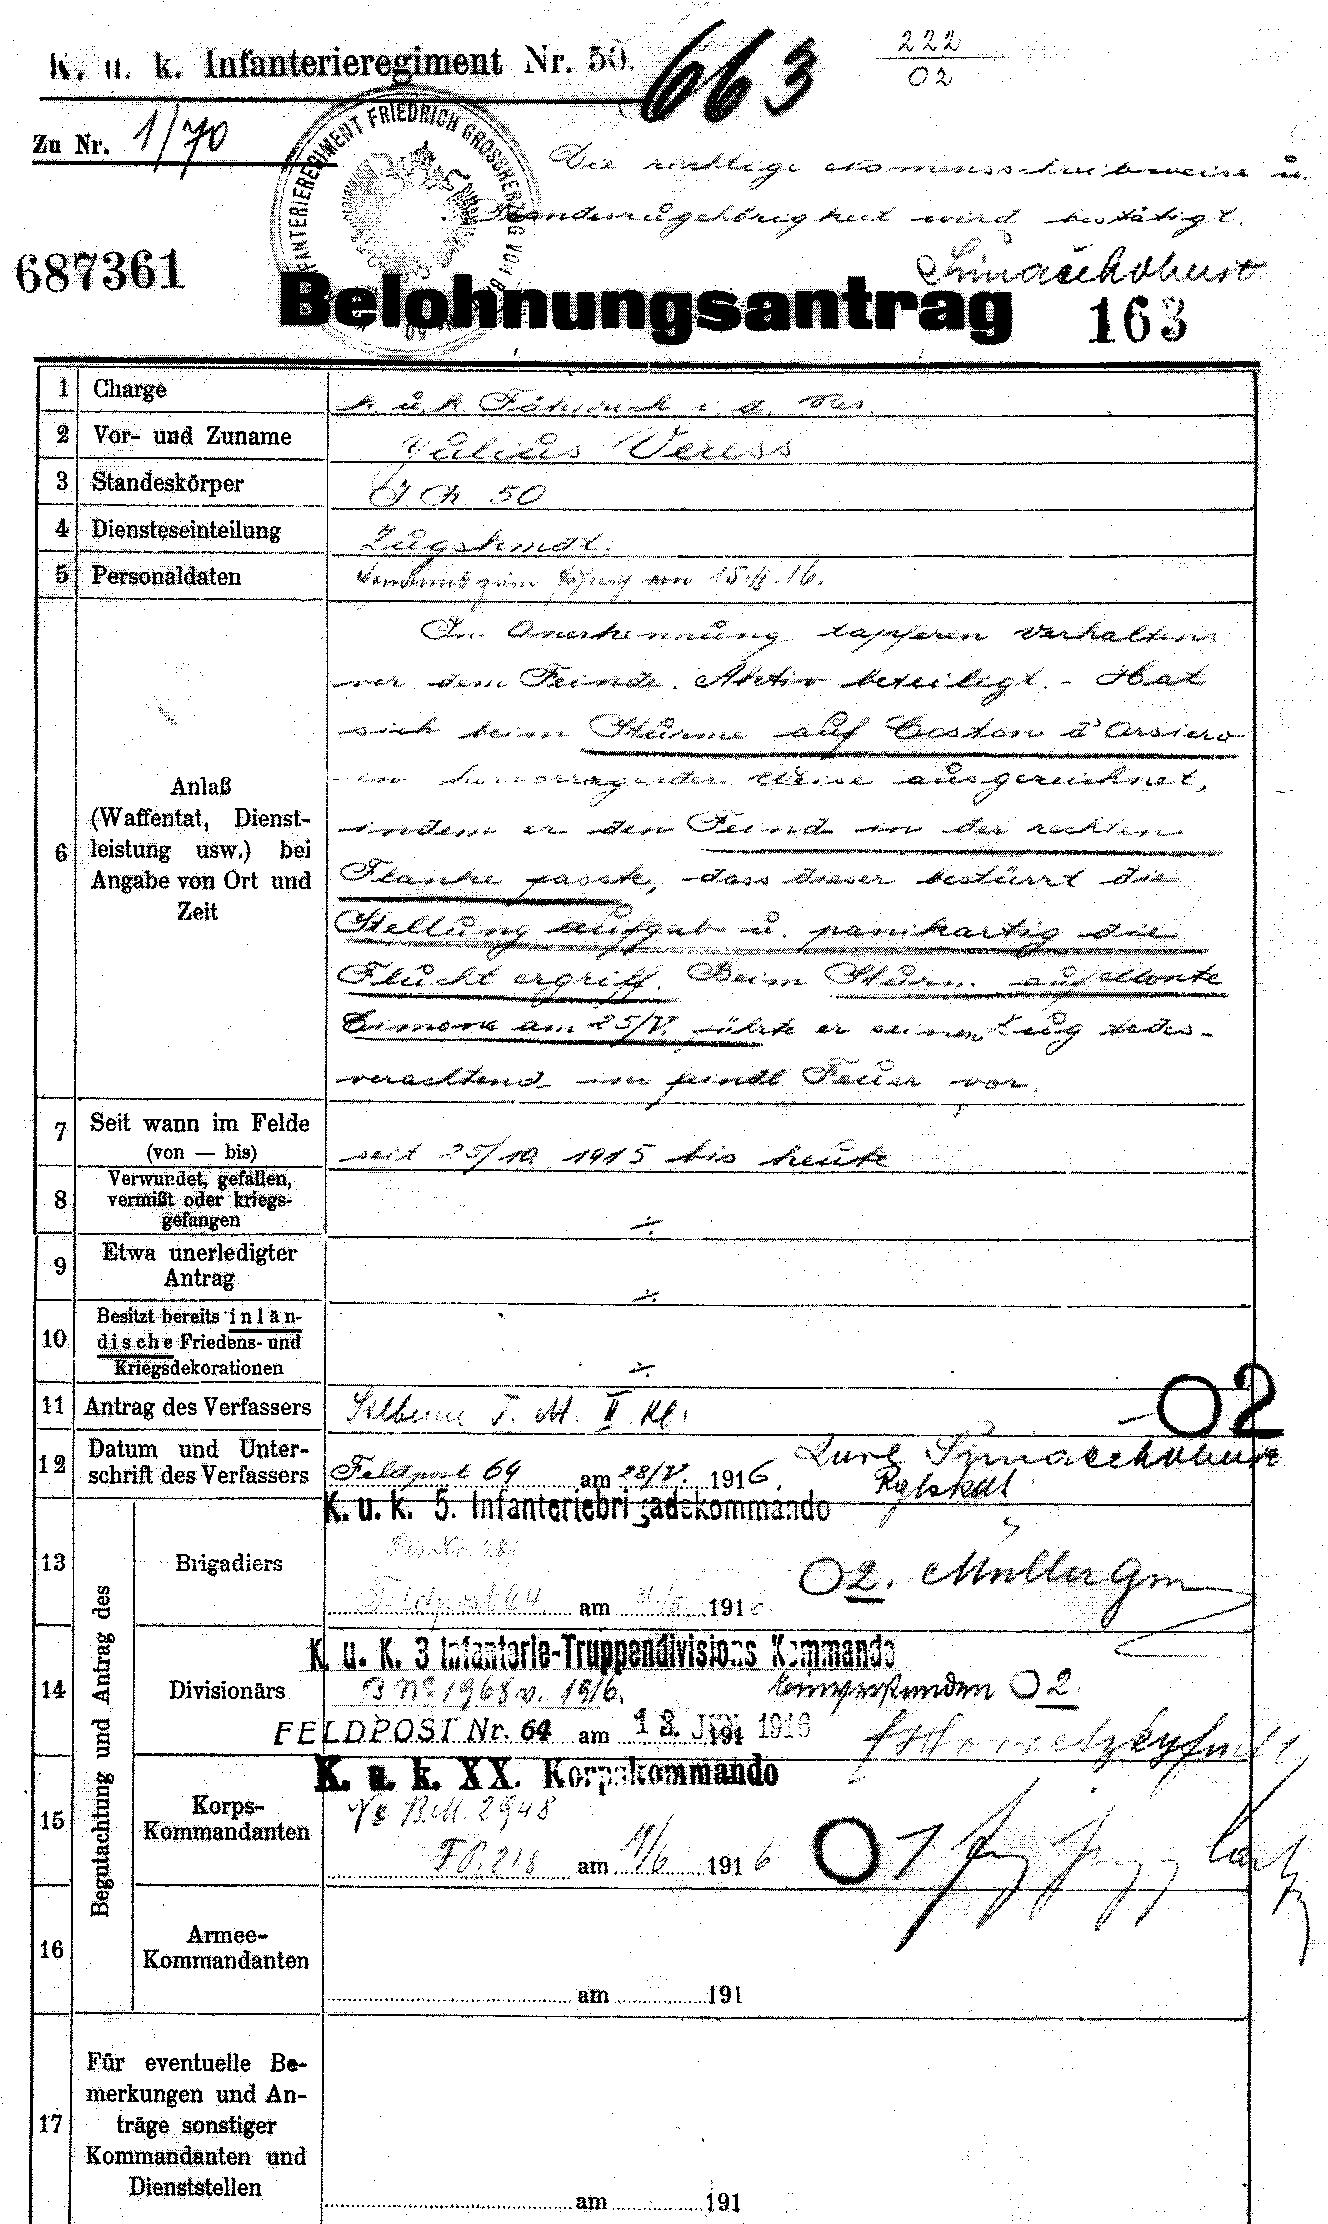 K. u. k. Infanterieregiment Nr. 50.
663
222
02
Zu Nr. 1/70
INFANTERIEREGIMENT FRIEDRICH GROSSHERZOG VON B
Die richtige Namensschreibweise u.
wird bestätigt.
687361
Belohnungsantrag
163
1 Charge
k. u. k. Fähnrich i. d. Res.
2 Vor- und Zuname
Julius Veress
3 Standeskörper
I R 50
4 Diensteseinteilung
Zugskmdt.
5 Personaldaten
am 15. 16.
6 Anlaß
(Waffentat, Dienst-
leistung usw.) bei
Angabe von Ort und
Zeit
In Anerkennung tapferen Verhaltens
vor dem Feinde. Aktiv beteiligt. - Hat
sich beim Sturme auf Coston d'Arsiero
in hervorragender Weise ausgezeichnet,
indem er den Feind in der rechten
Flanke passte, dass dieser bestürzt die
Stellung aufgab u. panikartig die
Flucht ergriff. Beim Sturm auf Monte
Cimone am 25/V. führte er seinen Zug todes-
verachtend im feindl Feuer vor.
7 Seit wann im Felde
(von — bis)
seit 25/10 1915 bis heute
8 Verwundet, gefallen,
vermißt oder kriegs-
gefangen
÷
9 Etwa unerledigter
Antrag
÷
10 Besitzt bereits inlän-
dische Friedens- und
Kriegsdekorationen
÷
11 Antrag des Verfassers
Silberne T. M. II Kl.
02
12 Datum und Unter-
schrift des Verfassers
Feldpost 64 am 28/V. 1916.
Rgtskdt
Begutachtung und Antrag des
K. u. k. 5. Infanteriebrigadekommando
13 Brigadiers
Feldpost 64 am 191
02. Müller Gm
K. u. K. 3 Infanterie-Truppendivisions Kommando
14 Divisionärs
B No 1968 v. 1916.
Einverstanden 02.
FELDPOST Nr. 64 am 13. JUNI 1916
191
K. u. k. XX. Korpskommando
15 Korps-
Kommandanten
No B.M. 2948
F.P. 218 am /6 1916
01
16 Armee-
Kommandanten
am 191
17 Für eventuelle Be-
merkungen und An-
träge sonstiger
Kommandanten und
Dienststellen
am 191